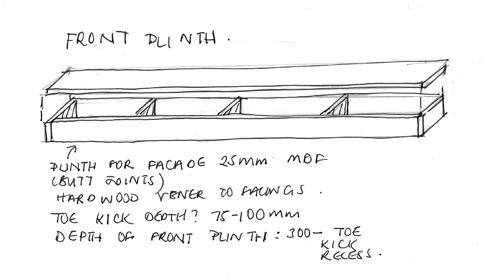 FRONT PLINTH.
PLINTH FOR FACADE 25mm MDF
(BUTT JOINTS)
HARDWOOD VENER TO FACINGS.
TOE KICK DEPTH? 75-100mm
DEPTH OF FRONT PLINTH: 300- TOE
KICK
RECESS.